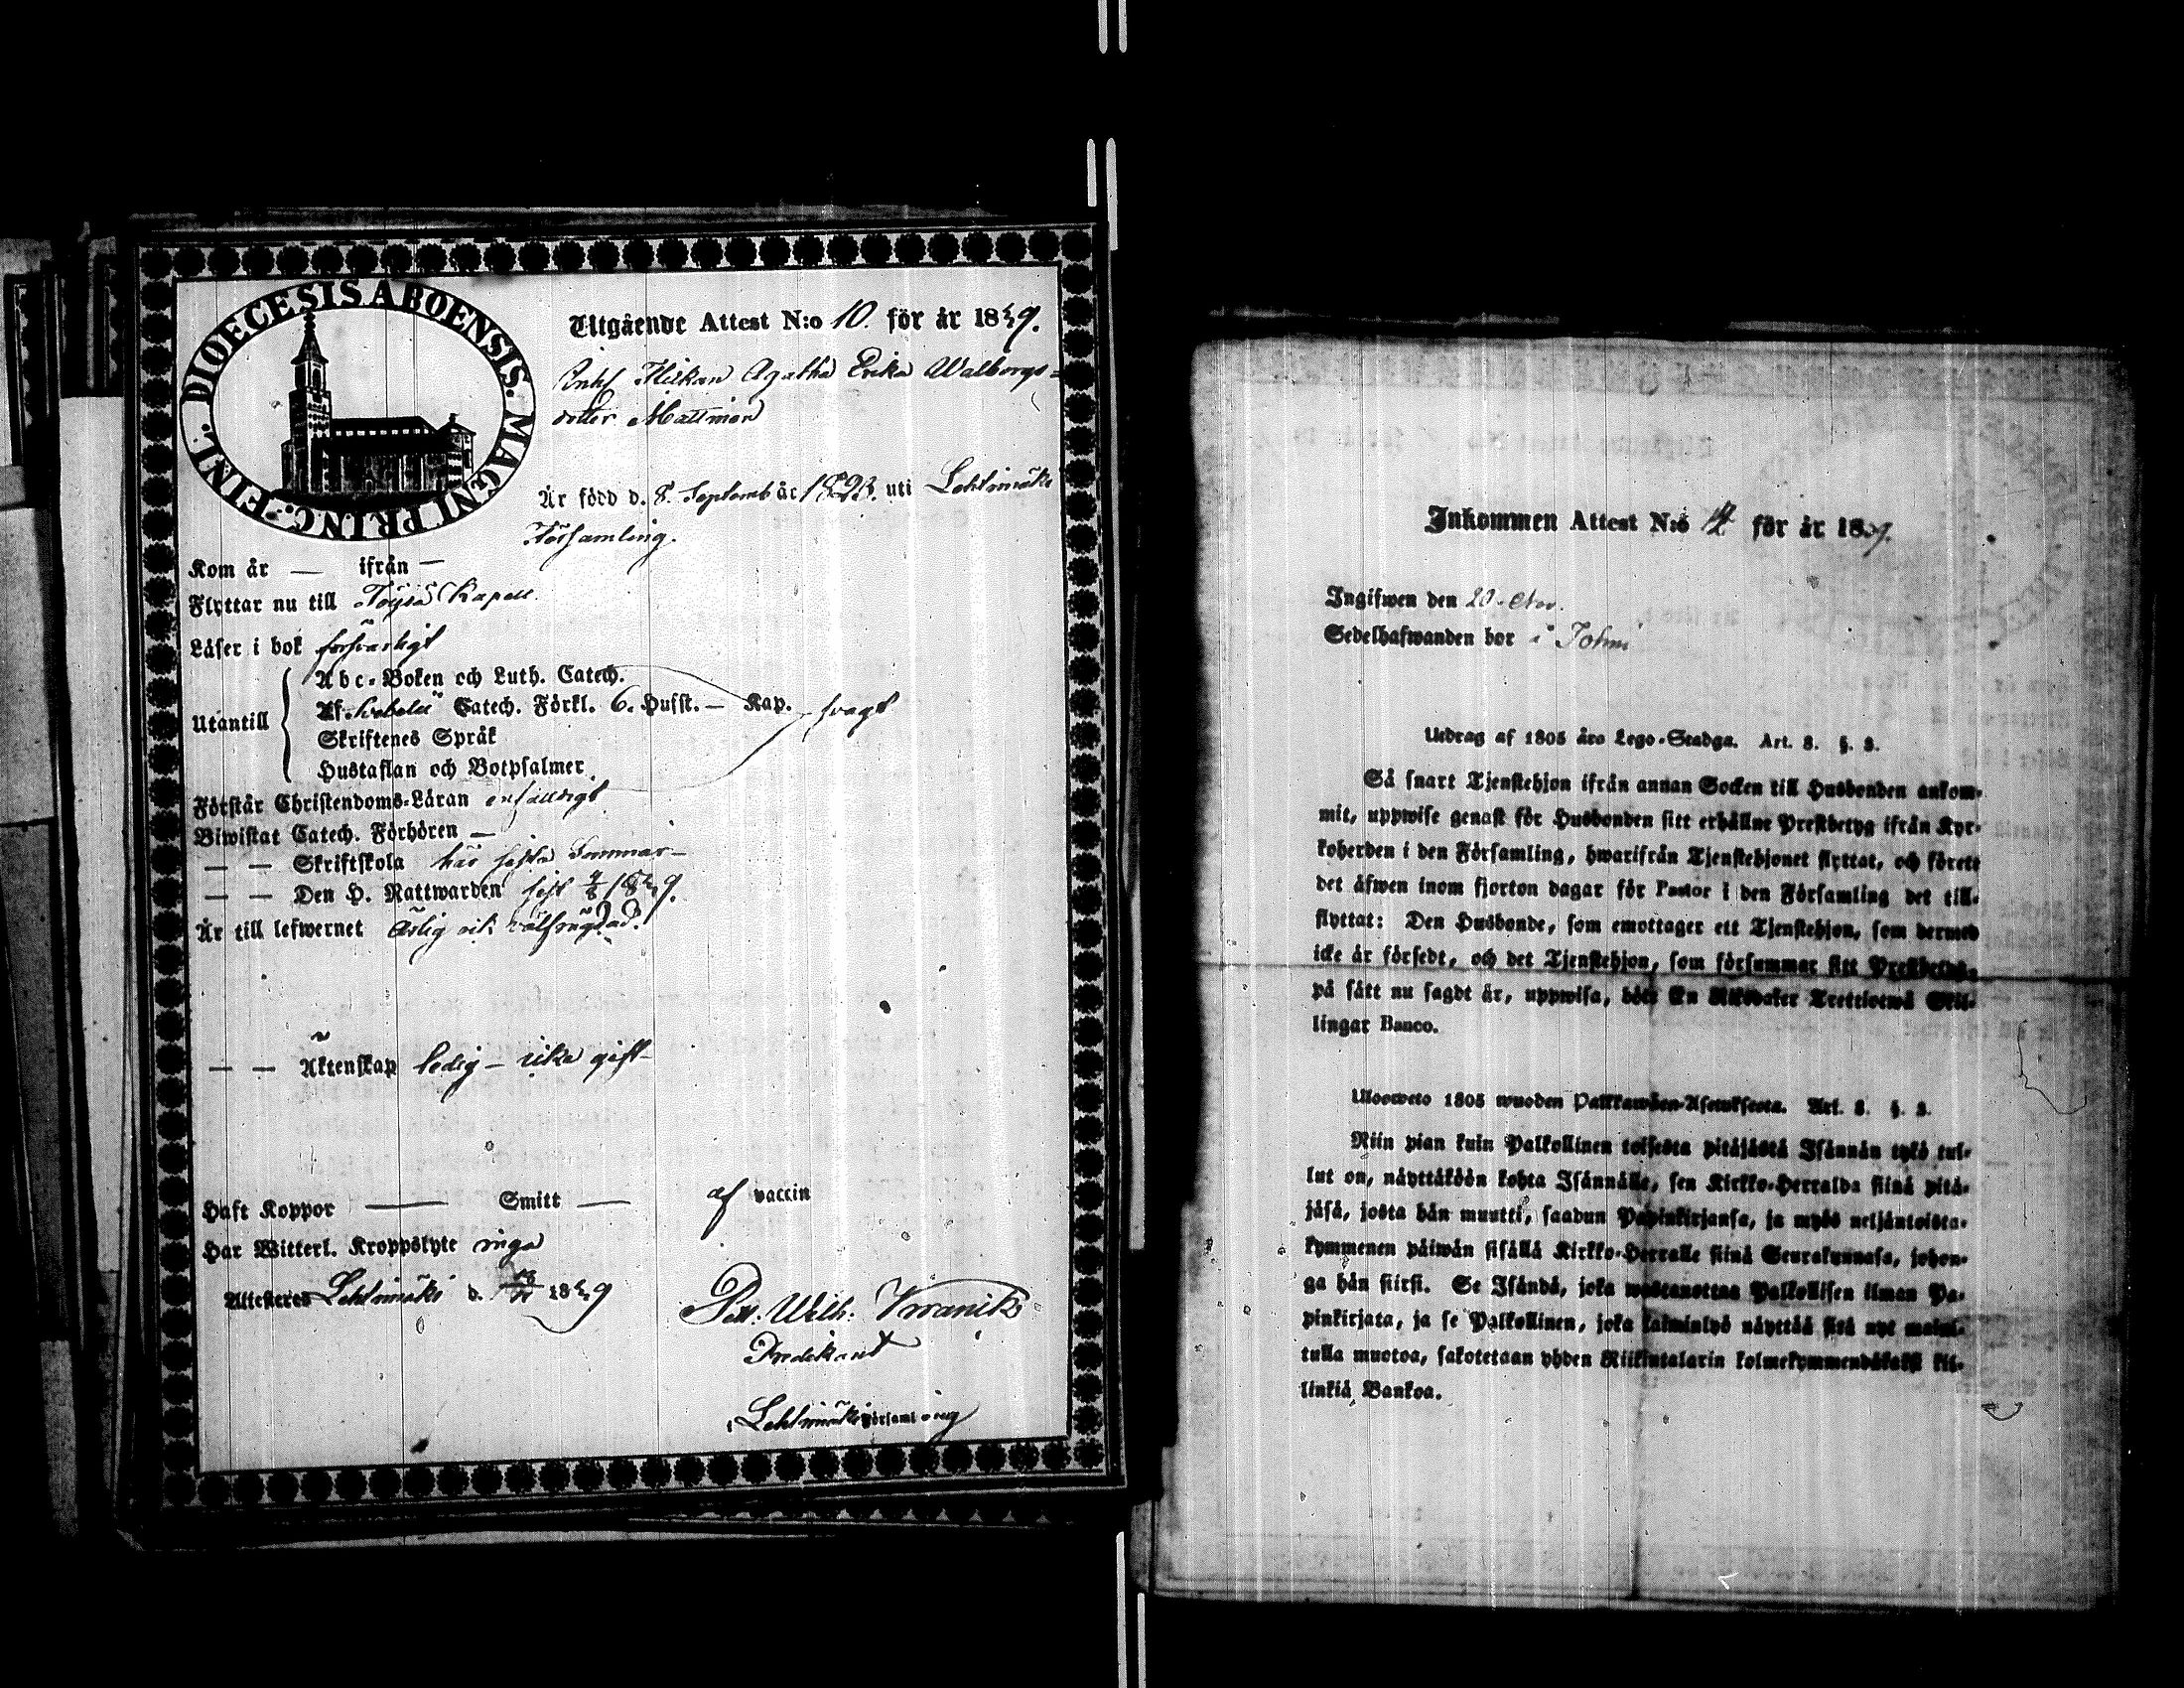 DIOECESIS ABOENSIS. MAGNI PRINC. FINL.
Utgående Attest N:o 10. för år 1849.
Agatha Erika Walborgs-
dotter Mattman
Är född d. 8. Septemb år 1823. uti Lehtimäki
Församling.
Kom år — ifrån —
Flyttar nu till Töysä Kapell
Läser i bok försvarligt
Utantill
Abc-Boken och Luth. Catech.
Af Catech. Förkl. 6. Husst. — Kap. svagt
Skriftenes Språk
Hustaflan och Botpsalmer
Förstår Christendoms-Läran enfaldigt
Biwistat Catech. Förhören —
— — Skriftskola här sista Sommar
— — Den H. Nattwarden sist 1849.
Är till lefwernet Ärlig och välfrägdad.
— — Äktenskap ledig — icke gift
Haft Koppor — Smitt — af vaccin
Har Witterl. Kroppslyte inga
Attesteras Lehtimäki d. 1849
Pett: Wilh:
Predikant
i Lehtimäki församling
Inkommen Attest N:o för år 18
Ingifwen den 20. Nov.
Sedelhafwanden bor i
Utdrag af 1805 års Lego-Stadga. Art. 3. §. 3.
Så snart Tjenstehjon ifrån annan Socken till Husbonden ankom-
mit, uppwise genast för Husbonden sitt erhållne Prestbetyg ifrån Kyr-
koherden i den Församling, hwarifrån Tjenstehjonet flyttat, och förete
det äfwen inom fjorton dagar för Pastor i den Församling det till-
flyttat: Den Husbonde, som emottager ett Tjenstehjon, som dermed
icke är försedt, och det Tjenstehjon, som försummar sitt Prestbetyg,
på sätt nu sagdt är, uppwisa, böte En Riksdaler Trettiotwå Skil-
lingar Banco.
Ulosweto 1805 wuoden Palkkawäen-Asetuksesta. Art. 3. §. 3.
Niin pian kuin Palkollinen toisesta pitäjästä Isännän tykö tul-
lut on, näyttäköön kohta Isännälle, sen Kirkko-Herralda siinä pitä-
jäsä, josta hän muutti, saadun Papinkirjansa, ja myös neljäntoista-
kymmenen päiwän sisällä Kirkko-Herralle siinä Seurakunnasa, johon-
ga hän siirsi. Se Isändä, joka wastanottaa Palkollisen ilman Pa-
pinkirjata, ja se Palkollinen, joka laiminlyö näyttää sitä nyt maini-
tulla muotoa, sakotetaan yhden Riikintalarin kolmekymmendäkaksi kil-
linkiä Bankoa.